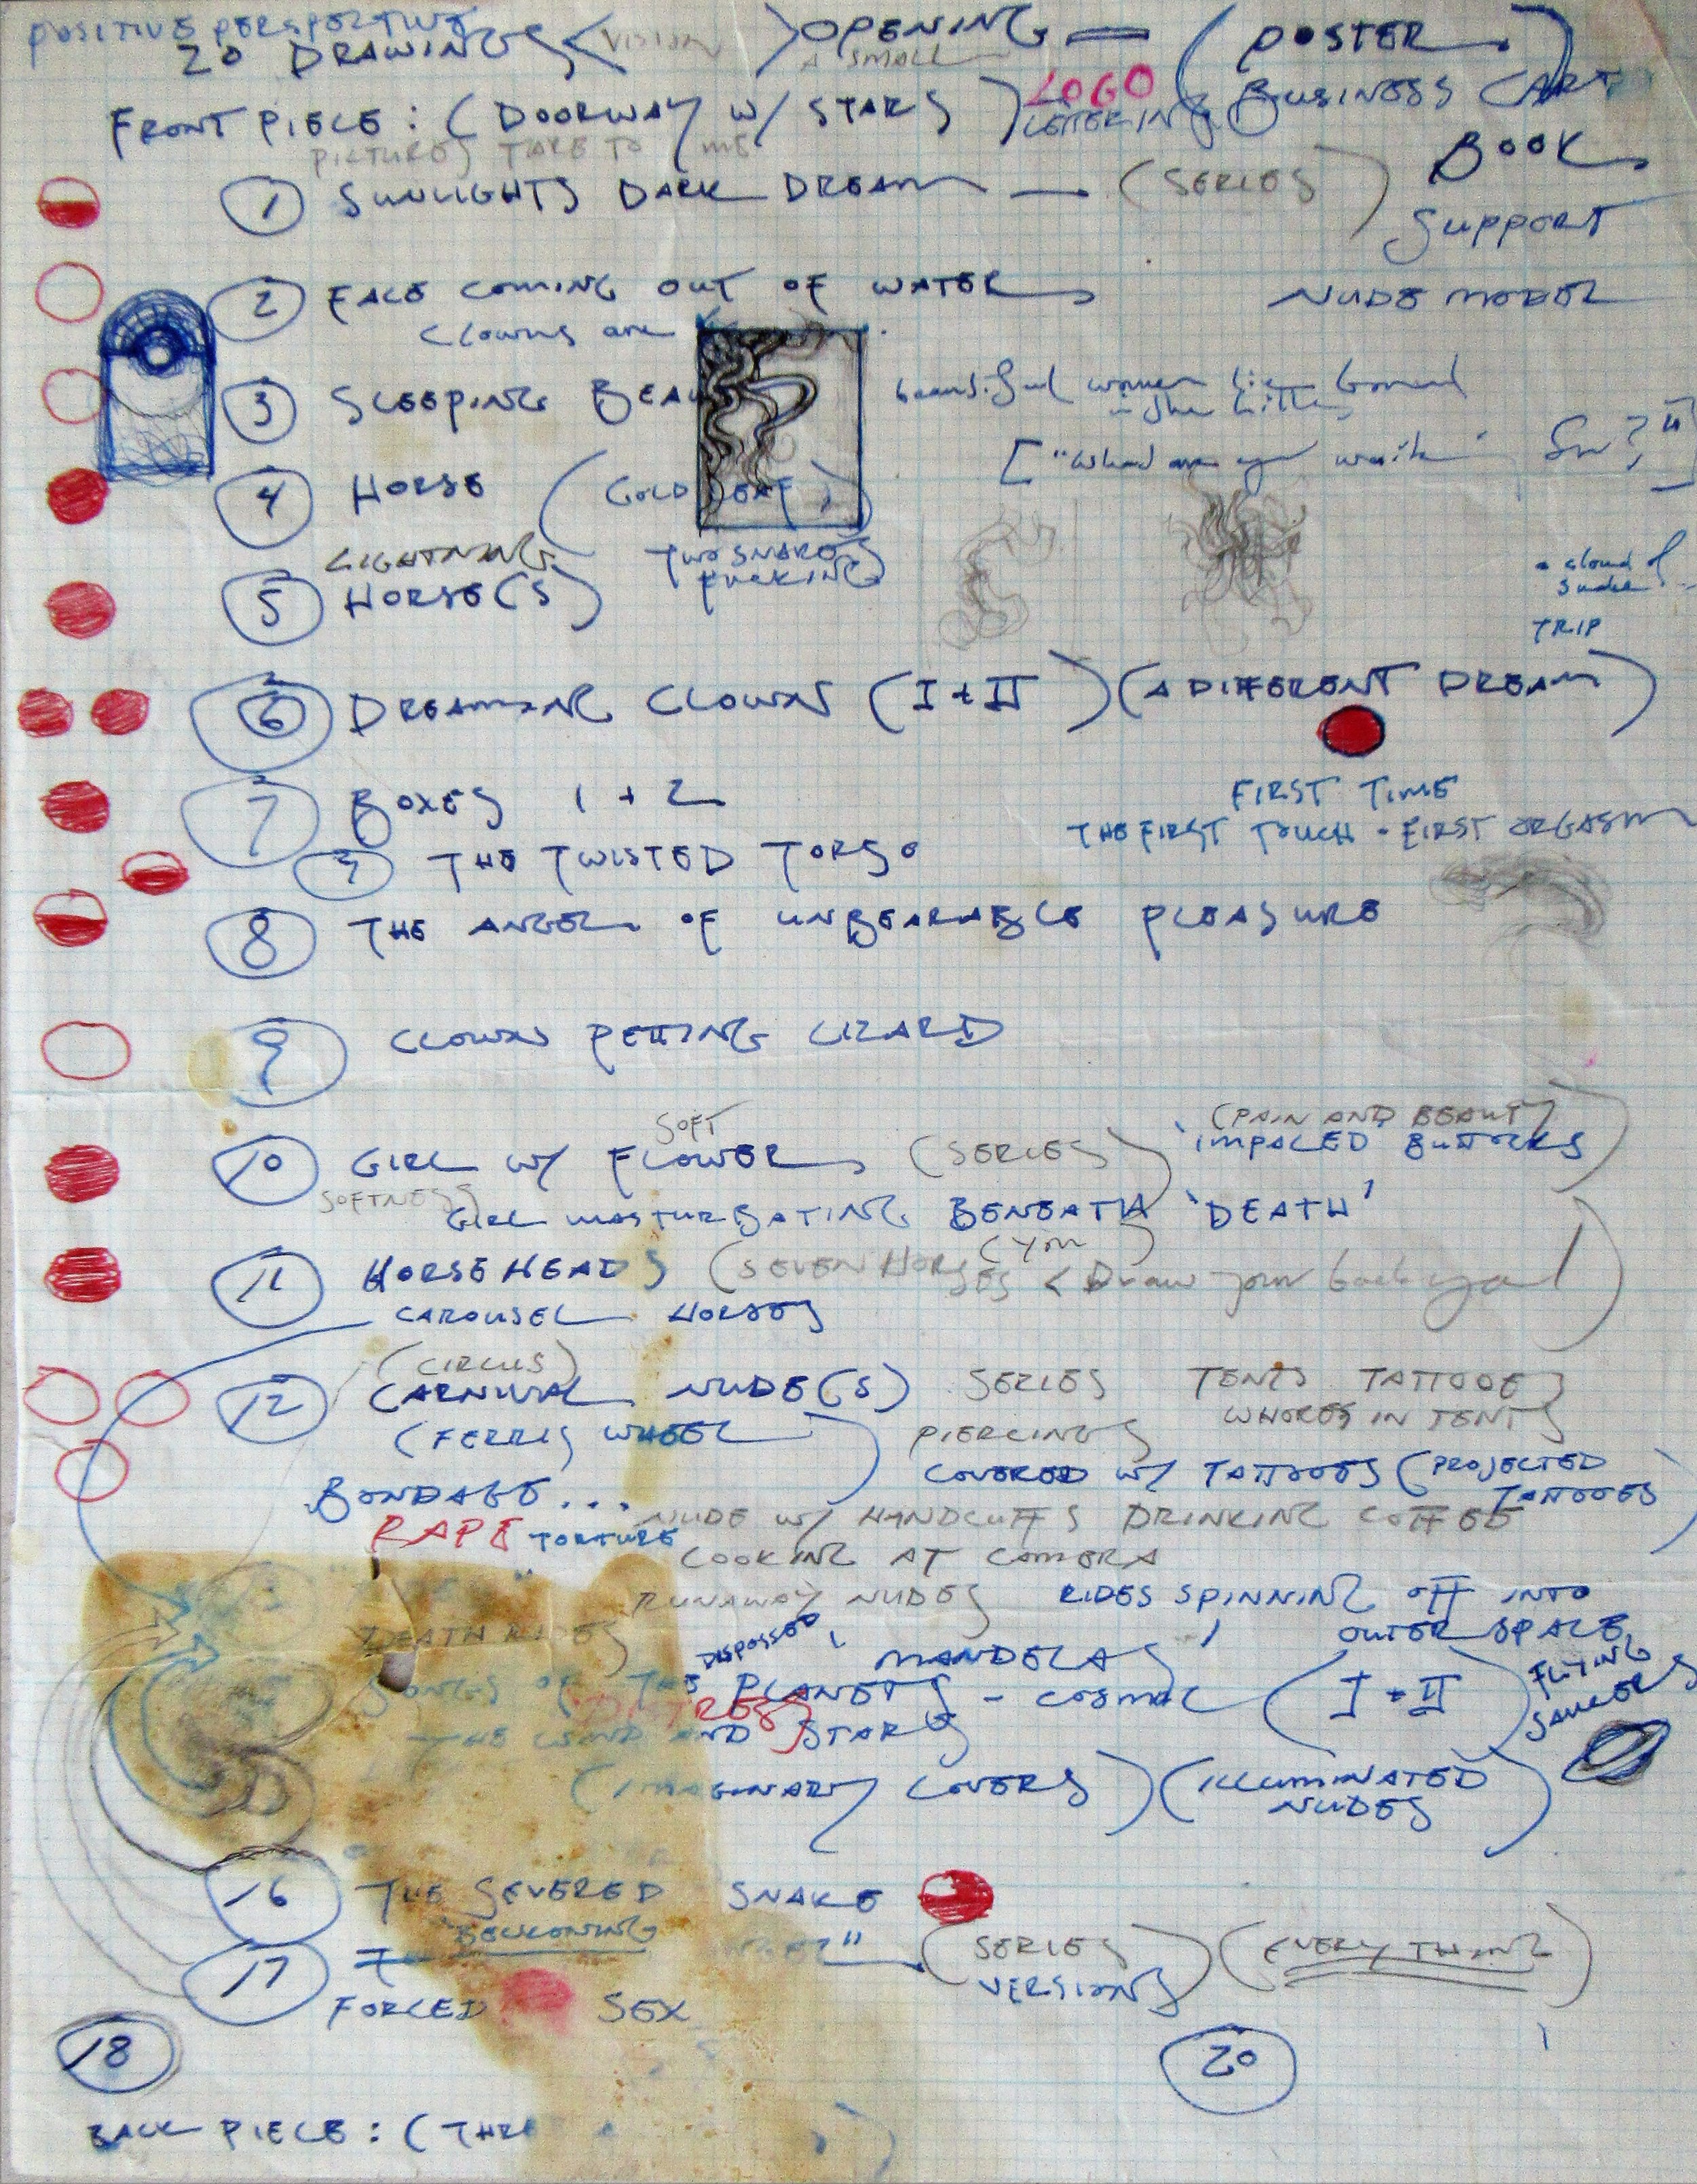 POSITIVE PERSPECTIVE
20 DRAWINGS < VISION > OPENING — (POSTER)
A SMALL
FRONT PIECE: (DOORWAY W/ STARS) LOGO
LETTERING
BUSINESS CARD
PICTURES TAKE TO ME
BOOK
1 SUNLIGHTS DARK DREAM — (SERIES)
SUPPORT
2 FACE COMING OUT OF WATER
NUDE MODEL
CLOWNS ARE
3 SLEEPING BEAU
beautiful women
in the
["What are you]
4 HORSE (GOLD LEAF)
LIGHTNING
TWO SNAKES
FUCKING
5 HORSE(S)
cloud of
TRIP
6 DREAMING CLOWN (I + II) (A DIFFERENT DREAM)
7 BOXES 1 + 2
FIRST TIME
THE FIRST TOUCH - FIRST ORGASM
7 THE TWISTED TORSO
8 THE ANGEL OF UNBEARABLE PLEASURE
9 CLOWN PETTING LIZARD
SOFT
(PAIN AND BEAUTY)
10 GIRL W/ FLOWER (SERIES) 'IMPALED BUTTOCKS
SOFTNESS
GIRL MASTURBATING BENEATH 'DEATH'
11 HORSE HEADS (SEVEN HORSES < Draw your back yard)
(YOU)
CAROUSEL HORSES
(CIRCUS)
12 CARNIVAL NUDE(S) SERIES TENTS TATTOOES
WHORES IN TENTS
(FERRIS WHEEL) PIERCINGS
COVERED W/ TATTOOES (PROJECTED
TATTOOES)
BONDAGE...
NUDE W/ HANDCUFFS DRINKING COFFEE
RAPE TORTURE
LOOKING AT CAMERA
RUNAWAY NUDES RIDES SPINNING OFF INTO
OUTER SPACE
DEATH RIDES
DISPOSSED
MANDELAS
SONGS OF THE PLANETS - COSMIC (I + II) FLYING
SAUCERS
DISTRESS
THE WIND AND STARS
(IMAGINARY LOVERS) (ILLUMINATED
NUDES)
16 THE SEVERED SNAKE
BECKONING
17 (SERIES (EVERY THING)
VERSIONS)
FORCED SEX
18
20
BACK PIECE: (THRE